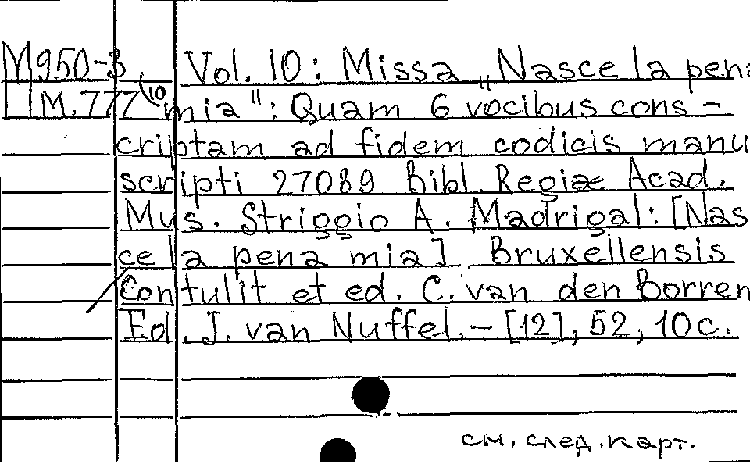 M950-3 Vol. 10: Missa „Nasce la pen
M.777(10 mia": Quam 6 vocibus cons-
criptam ad fidem codicis manu
scripti 27089 Bibl. Regiæ Acad.
Mus. Striggio A. Madrigal: [Nas
ce la pena mia] Bruxellensis
Contulit et ed. C. van den Borren
Ed. J. van Nuffel. – [12], 52, 10 c.
см. след. карт.